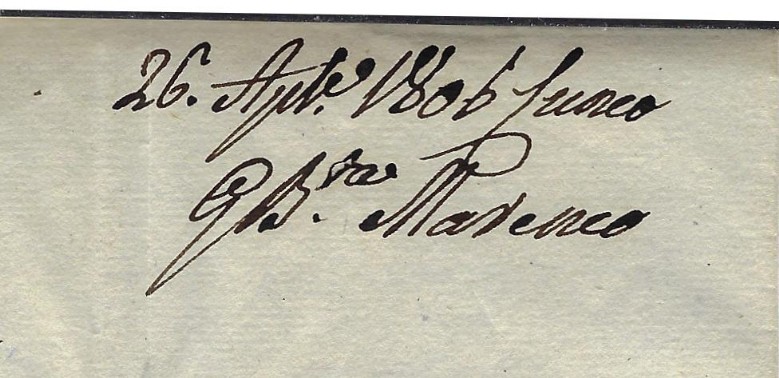 26. Aple. 1806 Cuneo
G Bta. Marenco